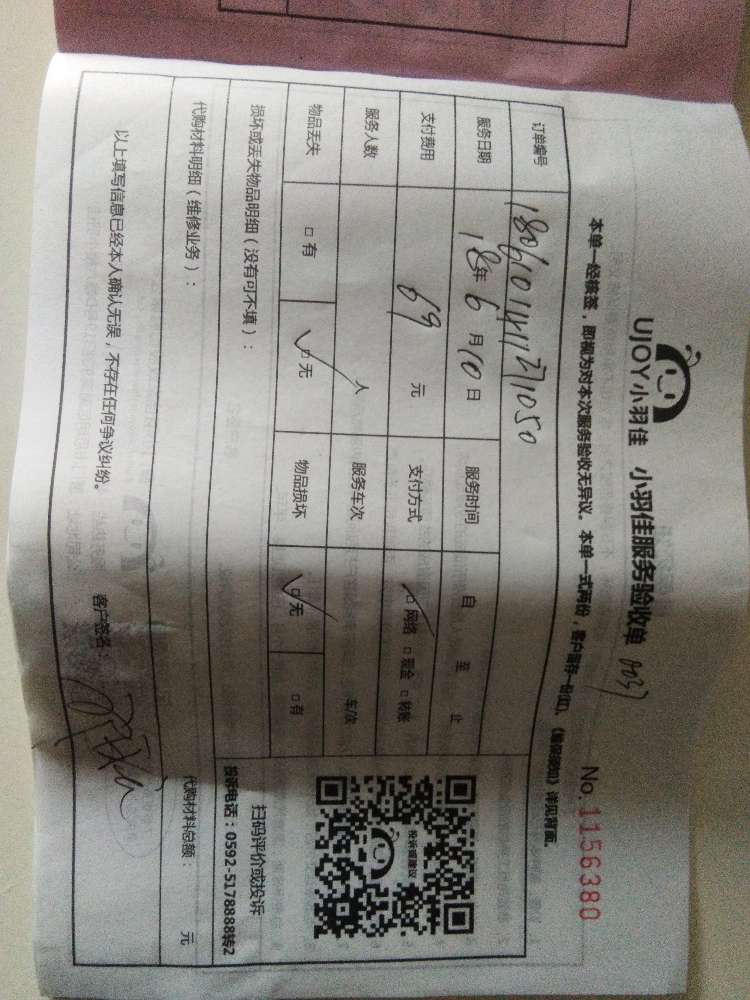 UJOY小羽佳 小羽佳服务验收单 0037
No. 1156380
本单一经核签，即视为对本次服务验收无异议。本单一式两份，客户留存一份(红)，《维保须知》详见背面。
订单编号
服务日期 18年 6月 10日 服务时间 自 至 止
支付费用 69 元 支付方式 ☑ 网络 □ 现金 □ 转账
服务人数 人 服务车次 车/次
物品丢失 □ 有 ☑ 无 物品损坏 ☑ 无 □ 有
投诉或建议
扫码评价或投诉
投诉电话：0592-5178888转2
损坏或丢失物品明细（没有可不填）：
代购材料明细（维修业务）： 代购材料总额： 元
以上填写信息已经本人确认无误，不存在任何争议纠纷。 客户签名：